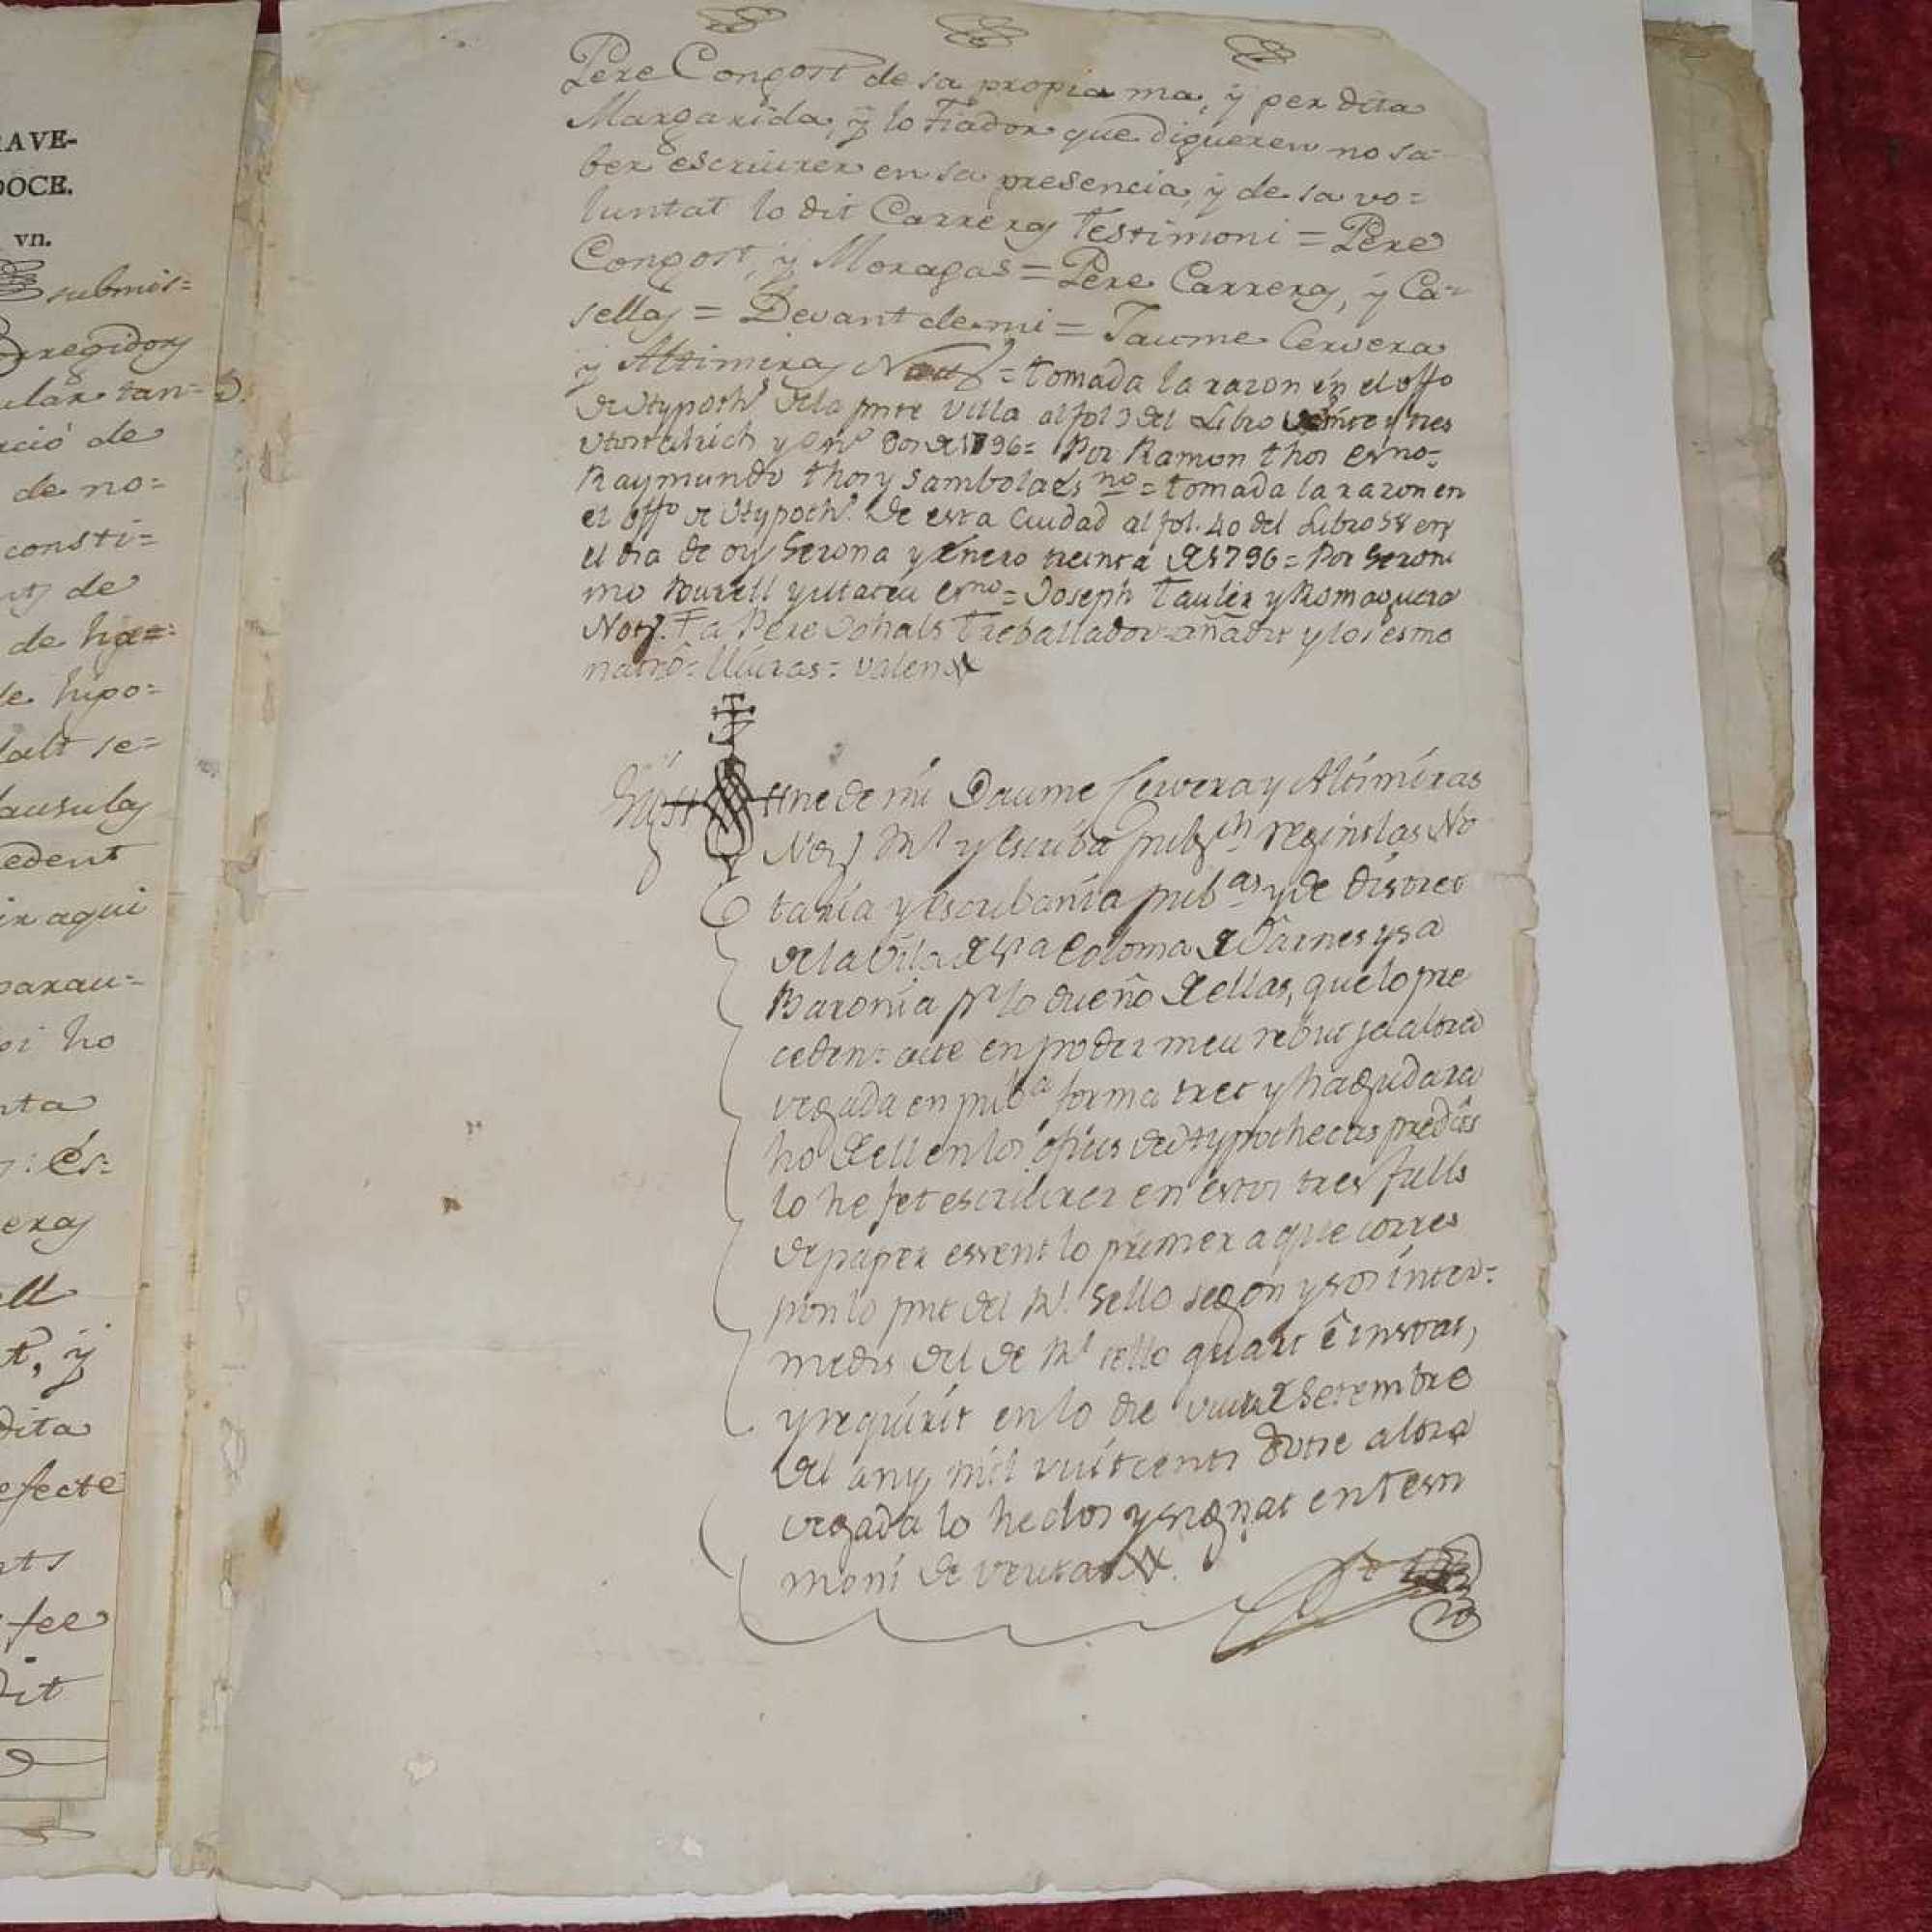 RAVE-
DOCE.
vn.
submis=
orregidors
ular tan=
ció de
de no=
consti=
de
de hipo=
alt se=
lausulas
edent
ir aqui
parau=
ho
nta
eras
ell
t, ÿ
dita
efecte
nts
fee
dit
Pere Congost de sa propia ma, ÿ per dita
Margarida, ÿ lo Fiador que digueren no sa=
ber escriurer en sa presencia, ÿ de sa vo=
luntat lo dit Carreras Testimoni = Pere
Congost, ÿ Moragas = Pere Carreras, ÿ Ca=
sellas = Devant de mi = Jaume Cervera
ÿ Altimiras Not = tomada la razon en el offo
de Hypoth.s de la pnte villa al fol 3 del Libro veinte y tres
Hostalrich y 1796 = Por Ramon thos esno =
Raymundo thos y Sambola esno = tomada la razon en
el offo de Hypoth.s De esta Ciudad al fol. 40 del Libro 58 en
el dia de oy Gerona y Enero treinta de 1796 = Por Geroni
mo Esno = Joseph Tauler y Romaguera
Not. Fa Pere treballador = añadit y lo esme
nat lliuras = valen
Sig ne de mi Jaume Cervera y Altimiras
Not Rl y Escriba pub regint las No
taria y escribania pub.as y de districte
de la Vila de Sta Coloma de Farnes y sa
Baronia pr lo dueño de ellas, que lo pre
cedent acte en poder meu rebut ja altra
vegada en pub.a forma tret y haguda ra
ho de ell en los ofiics de Hypothecas predits
lo he fet escriurer en estos tres fulls
de paper essent lo primer a que corres
pon lo pnt del Rl. Sello segon y los inter=
medis del de Rl sello quart é instat,
y requirit en lo die de Setembre
del any mil vuitcents dotse altra
vegada lo he clos y signat en testi
moni de veritat.